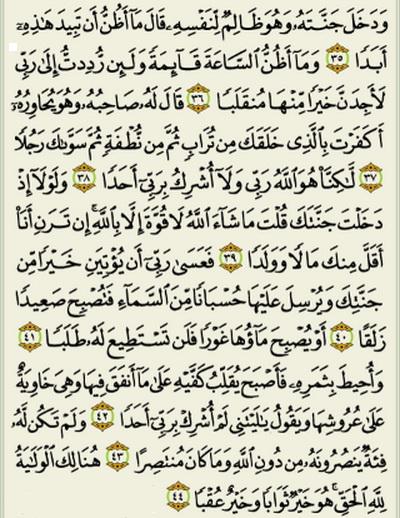 وَدَخَلَ جَنَّتَهُۥ وَهُوَ ظَالِمٌ لِّنَفْسِهِۦ قَالَ مَآ أَظُنُّ أَن تَبِيدَ هَٰذِهِۦٓ
أَبَدًا ٣٥ وَمَآ أَظُنُّ ٱلسَّاعَةَ قَآئِمَةً وَلَئِن رُّدِدتُّ إِلَىٰ رَبِّي
لَأَجِدَنَّ خَيْرًا مِّنْهَا مُنقَلَبًا ٣٦ قَالَ لَهُۥ صَاحِبُهُۥ وَهُوَ يُحَاوِرُهُۥٓ
أَكَفَرْتَ بِٱلَّذِي خَلَقَكَ مِن تُرَابٍ ثُمَّ مِن نُّطْفَةٍ ثُمَّ سَوَّىٰكَ رَجُلًا
٣٧ لَّٰكِنَّا۠ هُوَ ٱللَّهُ رَبِّي وَلَآ أُشْرِكُ بِرَبِّيٓ أَحَدًا ٣٨ وَلَوْلَآ إِذْ
دَخَلْتَ جَنَّتَكَ قُلْتَ مَا شَآءَ ٱللَّهُ لَا قُوَّةَ إِلَّا بِٱللَّهِ ۚ إِن تَرَنِ أَنَا۠
أَقَلَّ مِنكَ مَالًا وَوَلَدًا ٣٩ فَعَسَىٰ رَبِّيٓ أَن يُؤْتِيَنِ خَيْرًا مِّن
جَنَّتِكَ وَيُرْسِلَ عَلَيْهَا حُسْبَانًا مِّنَ ٱلسَّمَآءِ فَتُصْبِحَ صَعِيدًا
زَلَقًا ٤٠ أَوْ يُصْبِحَ مَآؤُهَا غَوْرًا فَلَن تَسْتَطِيعَ لَهُۥ طَلَبًا ٤١
وَأُحِيطَ بِثَمَرِهِۦ فَأَصْبَحَ يُقَلِّبُ كَفَّيْهِ عَلَىٰ مَآ أَنفَقَ فِيهَا وَهِيَ خَاوِيَةٌ
عَلَىٰ عُرُوشِهَا وَيَقُولُ يَٰلَيْتَنِي لَمْ أُشْرِكْ بِرَبِّيٓ أَحَدًا ٤٢ وَلَمْ تَكُن لَّهُۥ
فِئَةٌ يَنصُرُونَهُۥ مِن دُونِ ٱللَّهِ وَمَا كَانَ مُنتَصِرًا ٤٣ هُنَالِكَ ٱلْوَلَٰيَةُ
لِلَّهِ ٱلْحَقِّ ۚ هُوَ خَيْرٌ ثَوَابًا وَخَيْرٌ عُقْبًا ٤٤